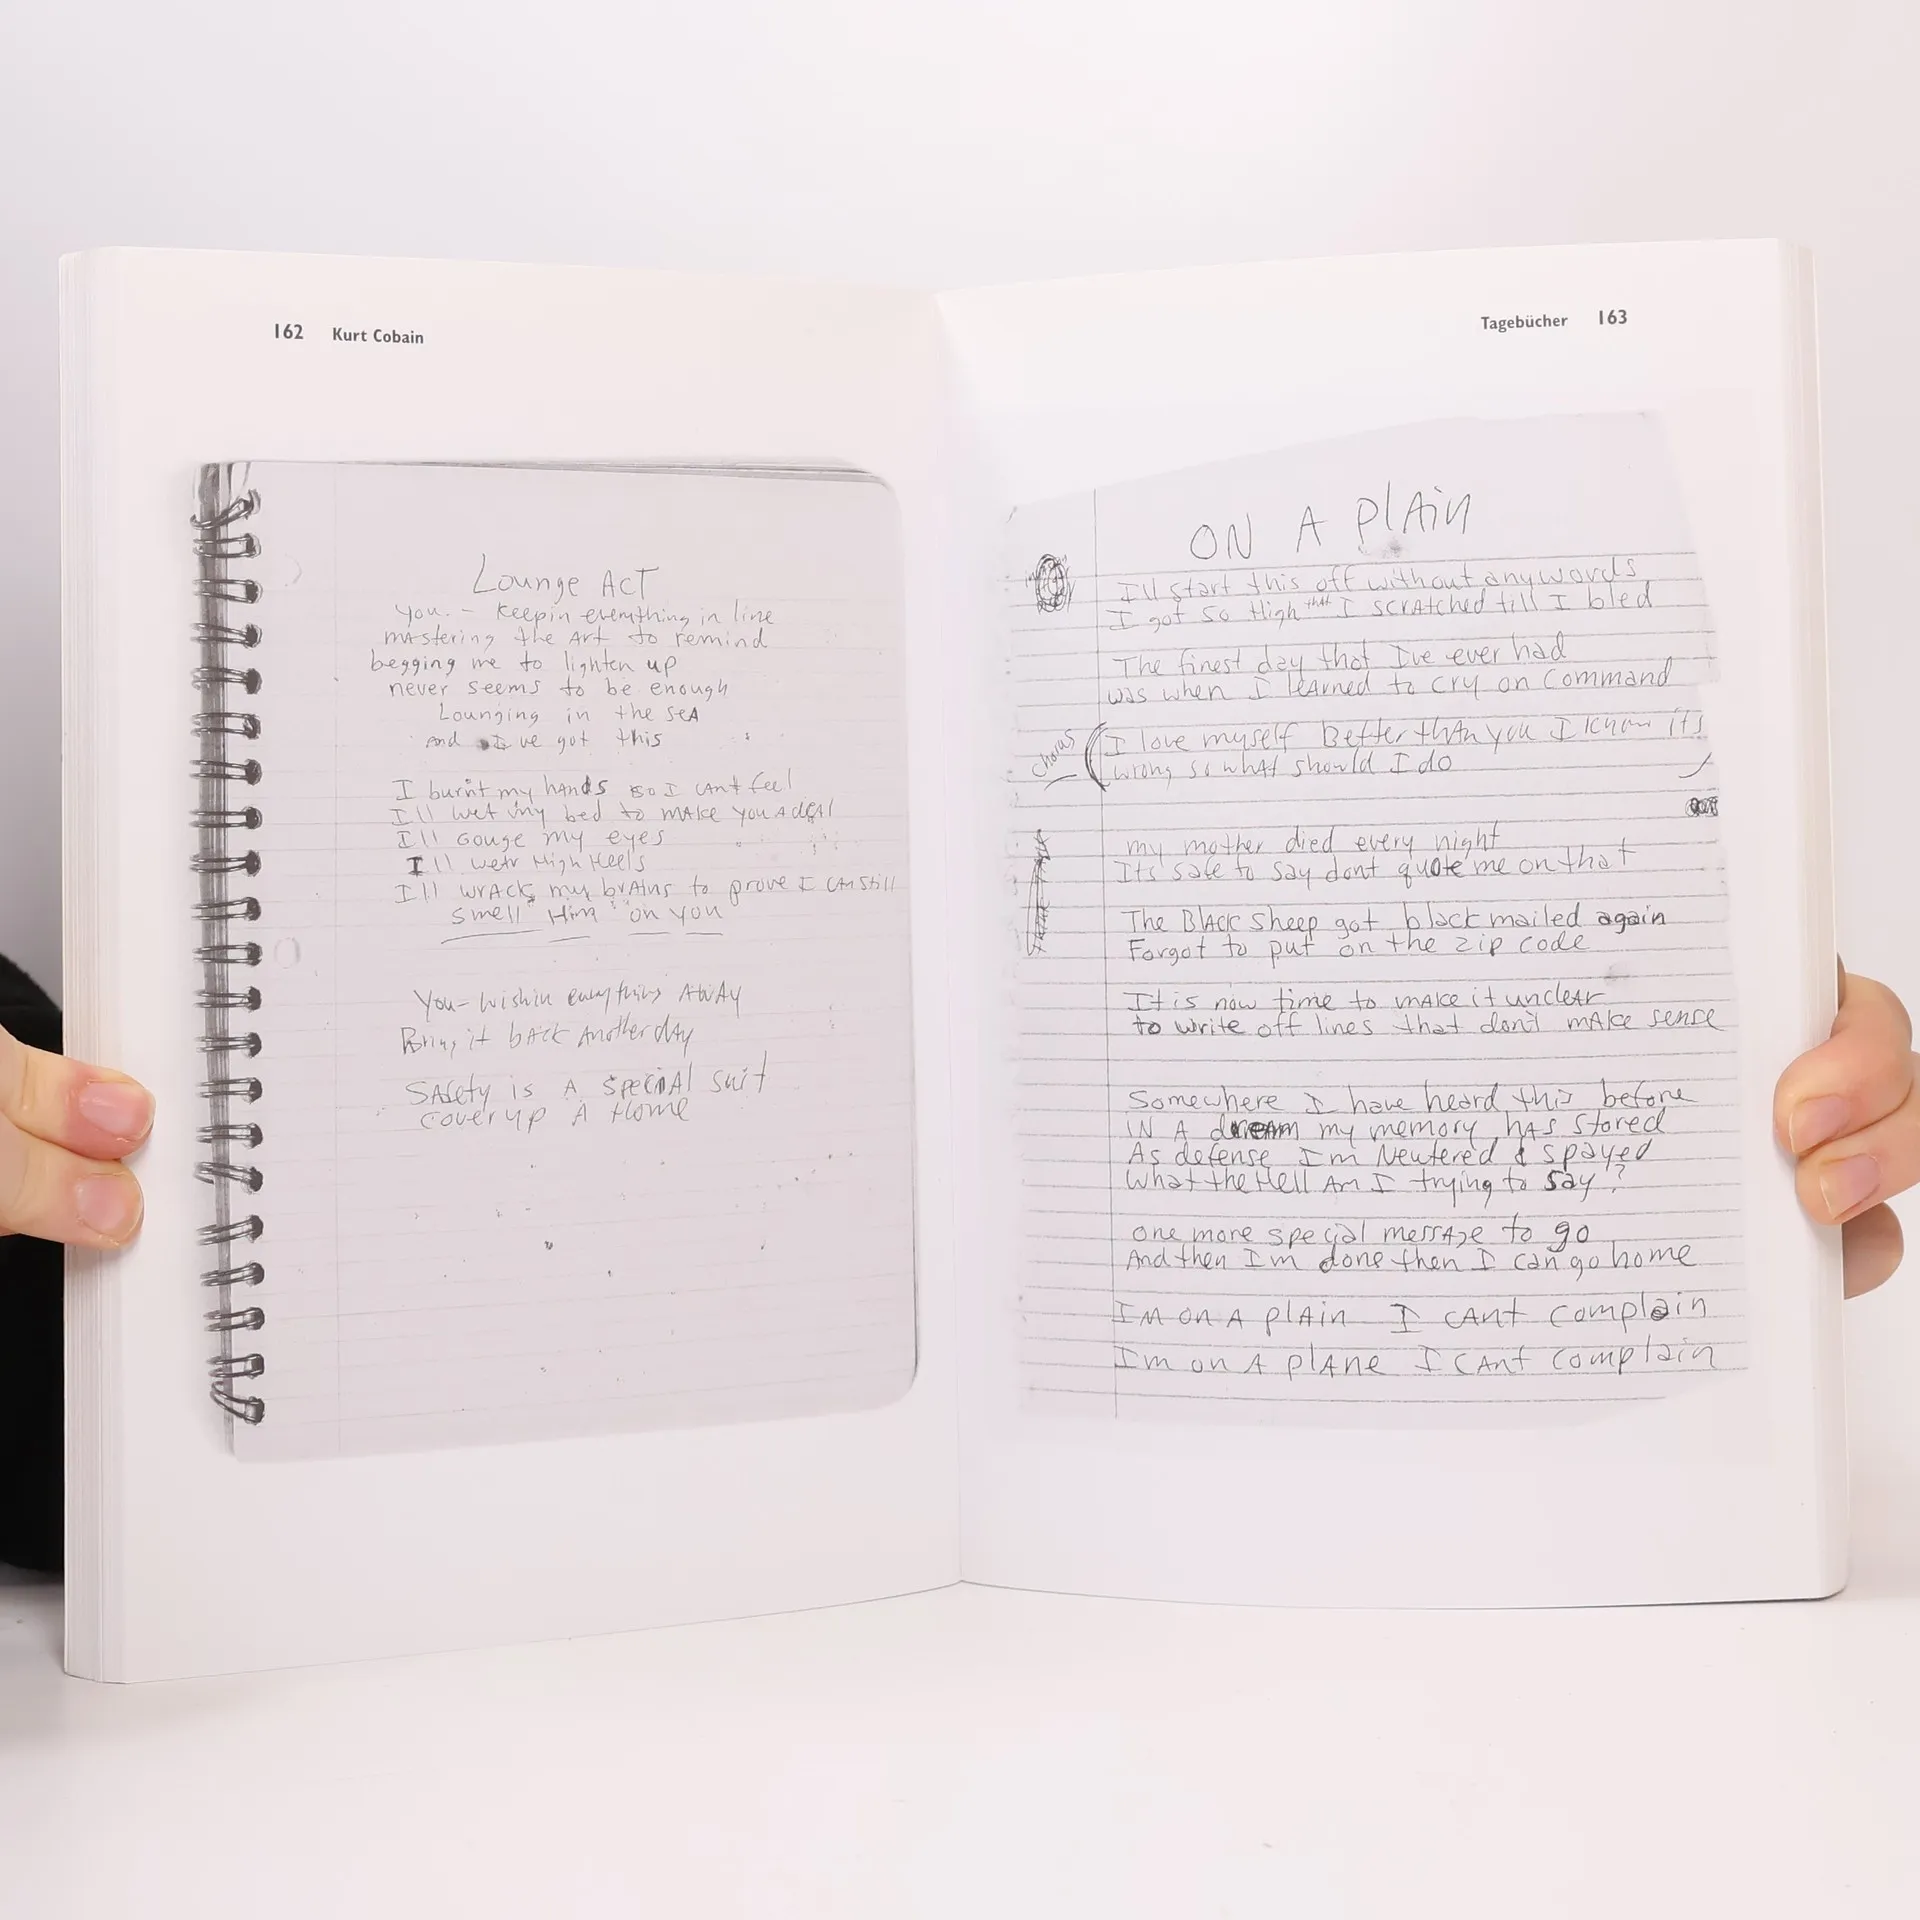 162 Kurt Cobain
Lounge Act
You. - Keepin everything in line
mastering the Art to remind
begging me to lighten up
never seems to be enough
Lounging in the sea
And I've got this
I burnt my hands so I cant feel
I'll wet my bed to make you a deal
I'll Gouge my eyes
I'll wear High Heels
I'll wrack my brains to prove I can still
smell Him on you
You - wishin everything Away
Bring it back Another day
Safety is A special suit
cover up A Home
Tagebücher 163
ON A PlAin
I'll start this off without any words
I got so High that I scratched till I bled
The finest day that I've ever had
was when I learned to cry on command
chorus
I love myself Better than you I know its
wrong so what should I do
my mother died every night
Its safe to say dont quote me on that
The Black Sheep got blackmailed again
Forgot to put on the zip code
It is now time to make it unclear
to write off lines that don't make sense
Somewhere I have heard this before
IN A dream my memory has stored
As defense I'm Neutered & spayed
what the Hell Am I trying to say?
one more special message to go
And then I'm done then I can go home
I'm on A plain I cant complain
I'm on A plane I cant complain